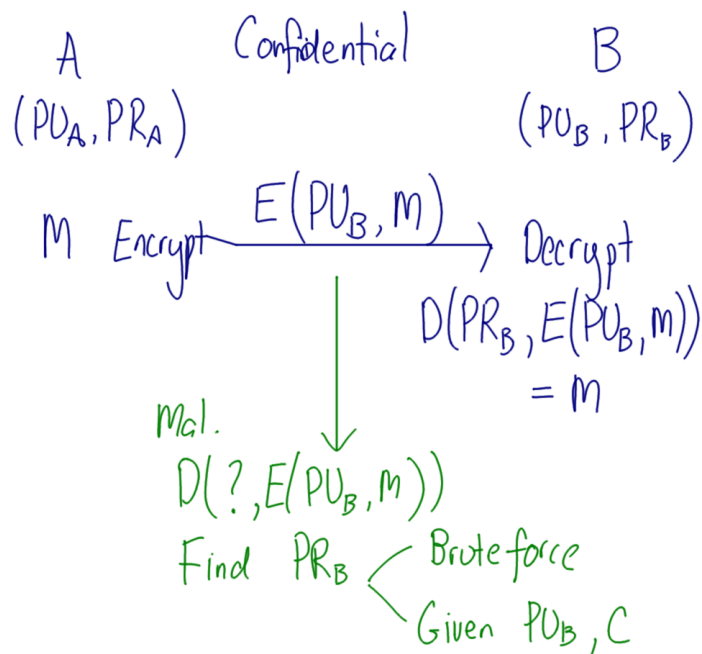 A Confidential B
(PU_A, PR_A) (PU_B, PR_B)
E(PU_B, M)
M Encrypt Decrypt
D(PR_B, E(PU_B, M))
= M
Mal.
D(?, E(PU_B, M))
Find PR_B Bruteforce
Given PU_B, C